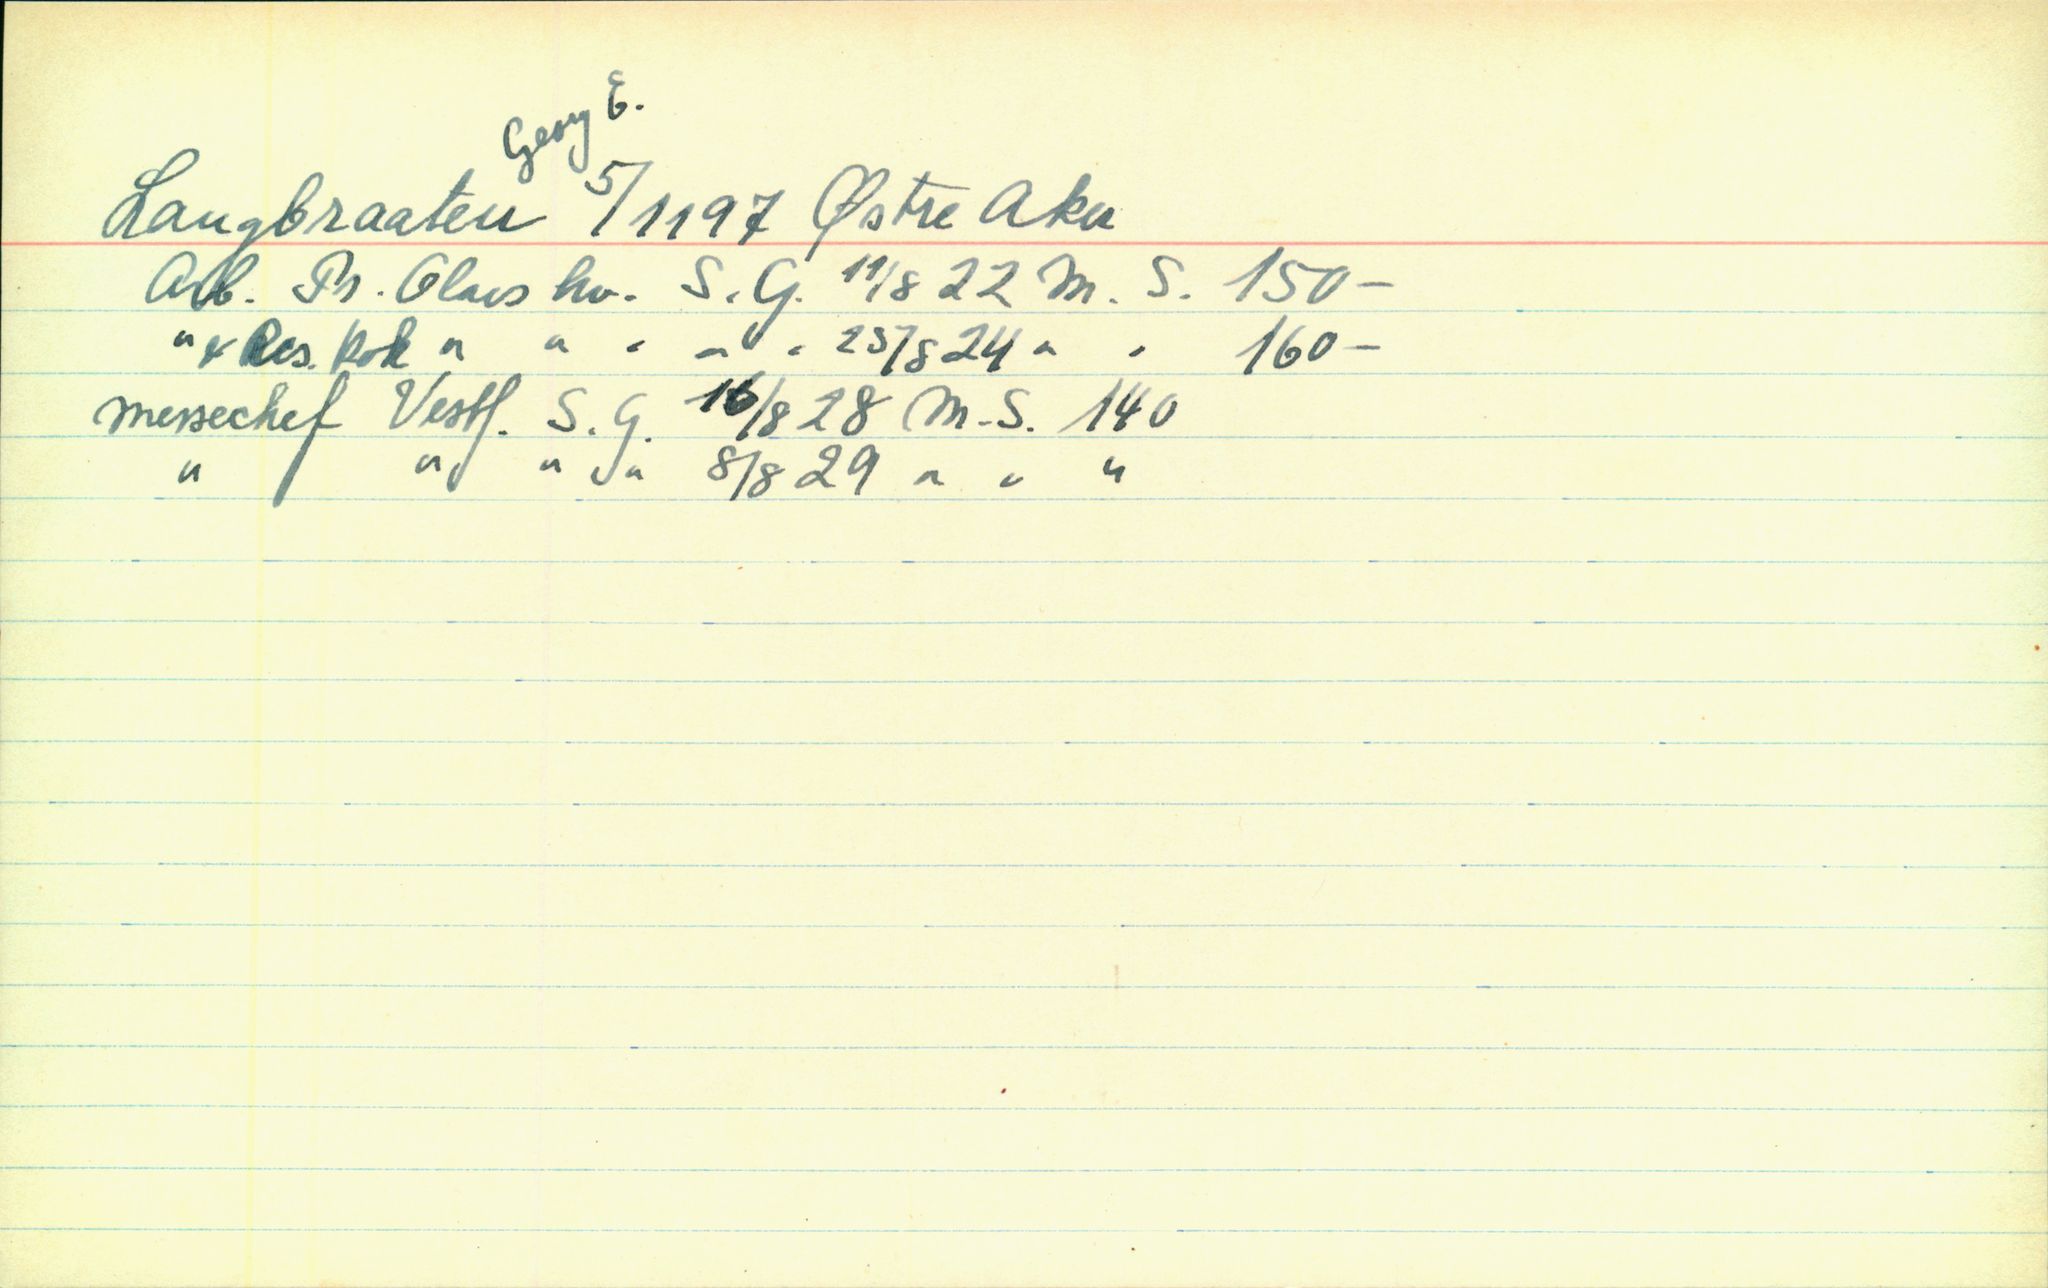 Georg E.
Langbraaten 5/11 97 Østre Aker
Arb. Pr. Olavs hv. S. G. 11/8 22 M. S. 150 –
" & Res. kok " " " " " 25/8 24 " " 160 –
Messechef Vestf. S. G. 16/8 28 M. S. 140
" " " " 8/8 29 " " "